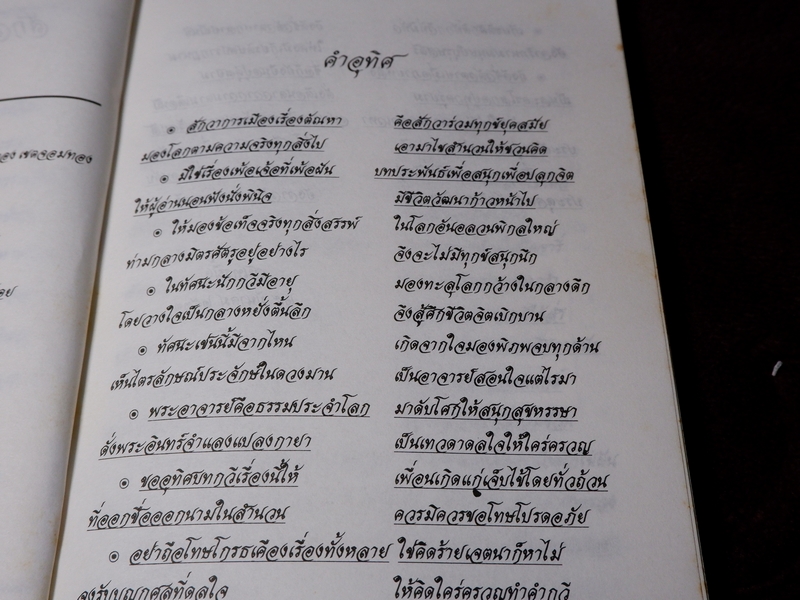 อง เขตจอมทอง
อย
คำอุทิศ
๏ สักวาการเมืองเรื่องตัณหา คือสักวาร่วมทุกข์ยุคสมัย
มองโลกตามความจริงทุกสิ่งไป เอามาไขสำนวนให้ชวนคิด
๏ มิใช่เรื่องเพ้อเจ้อที่เพ้อฝัน บทประพันธ์เพื่อสนุกเพื่อปลุกจิต
ให้ผู้อ่านนอนฟังนั่งพินิจ มีชีวิตวัฒนาก้าวหน้าไป
๏ ให้มองข้อเท็จจริงทุกสิ่งสรรพ์ ในโลกอันอลวนพิกลใหญ่
ท่ามกลางมิตรศัตรูอยู่อย่างไร จึงจะไม่มีทุกข์สนุกนึก
๏ ในทัศนะนักกวีมีอายุ มองทะลุโลกกว้างในกลางดึก
โดยวางใจเป็นกลางหยั่งตื้นลึก จึงสู้ศึกชีวิตจิตเบิกบาน
๏ ทัศนะเช่นนี้มีจากไหน เกิดจากใจมองพิภพจบทุกด้าน
เห็นไตรลักษณ์ประจักษ์ในดวงมาน เป็นอาจารย์สอนใจแต่ไรมา
๏ พระอาจารย์คือธรรมประจำโลก มาดับโศกให้สนุกสุขหรรษา
ดั่งพระอินทร์จำแลงแปลงกายา เป็นเทวดาดลใจให้ใคร่ครวญ
๏ ขออุทิศบทกวีเรื่องนี้ให้ เพื่อนเกิดแก่เจ็บไข้โดยทั่วถ้วน
ที่ออกชื่อออกนามในสำนวน ควรมิควรขอโทษโปรดอภัย
๏ อย่าถือโทษโกรธเคืองเรื่องทั้งหลาย ใช่คิดร้ายเจตนาก็หาไม่
จงรับบุญกุศลที่ดลใจ ให้คิดใคร่ครวญทำคำกวี